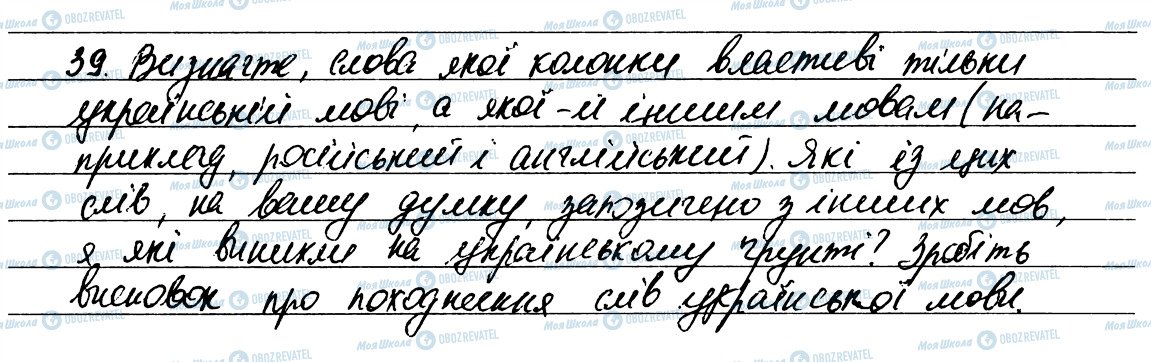 39. Визначте, слова якої колонки властиві тільки
українській мові, а якої-й іншим мовам (на-
приклад, російський і англійський). Які із цих
слів, на вашу думку, запозичено з інших мов,
я які виникли на українському ґрунті? Зробіть
висновок про походження слів української мови.